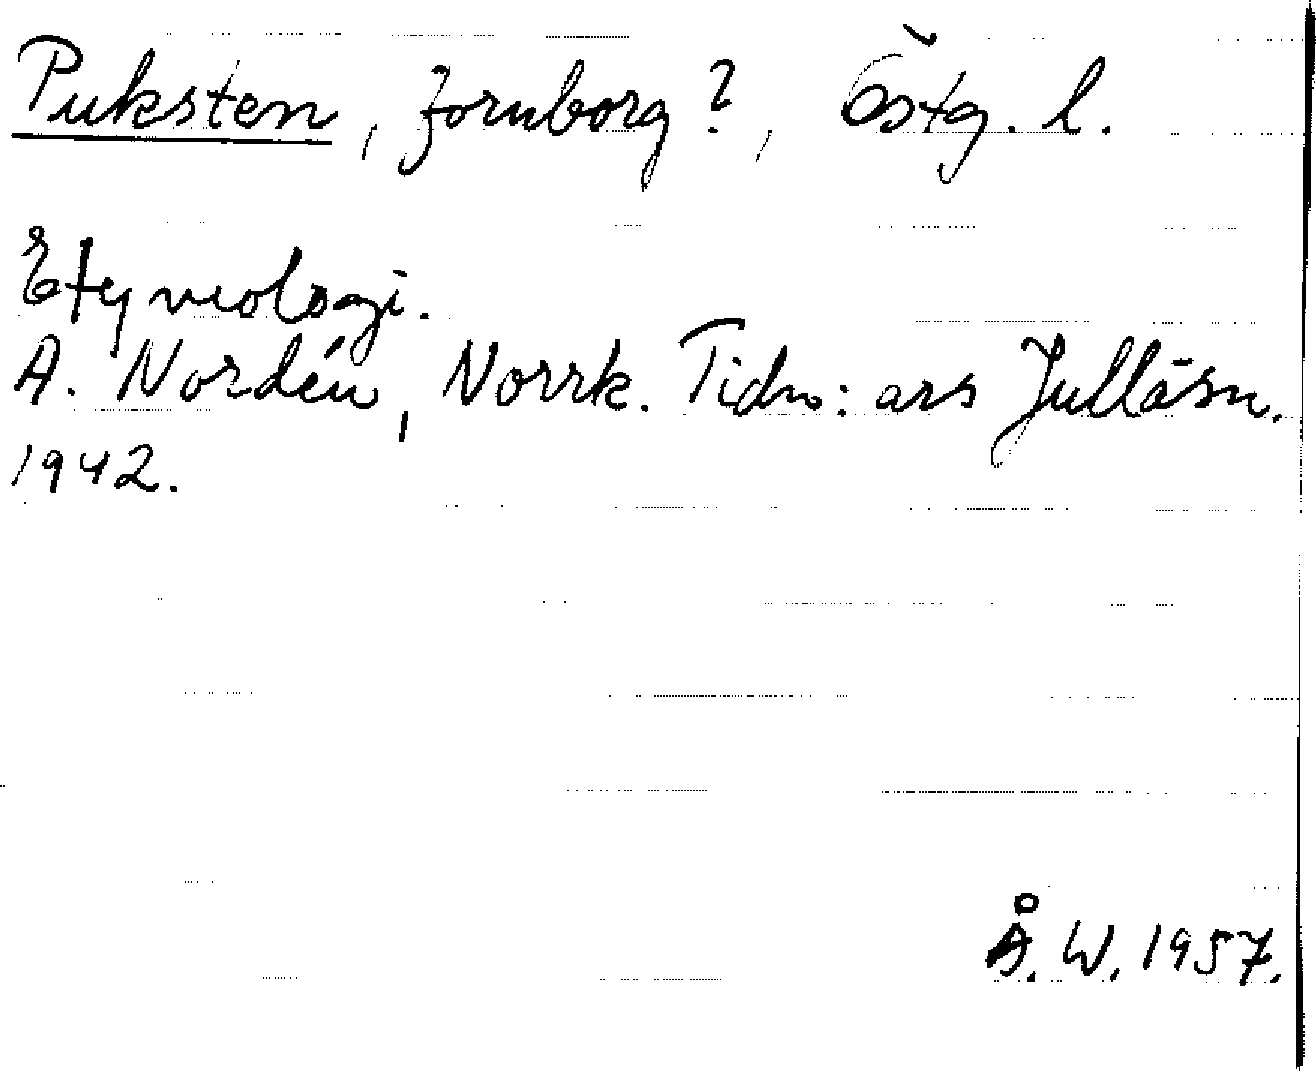 Puksten, fornborg?, Östg. l.
Etymologi.
A. Nordén, Norrk. Tidn:ars Julläsn.
1942.
Å. W. 1957.